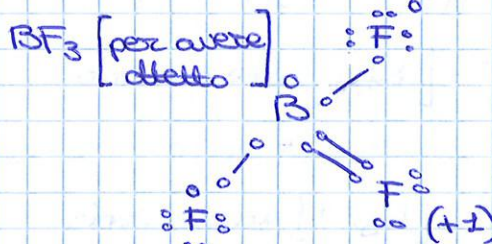 BF3 [per avere
ottetto]
F
B
F
F (+1)